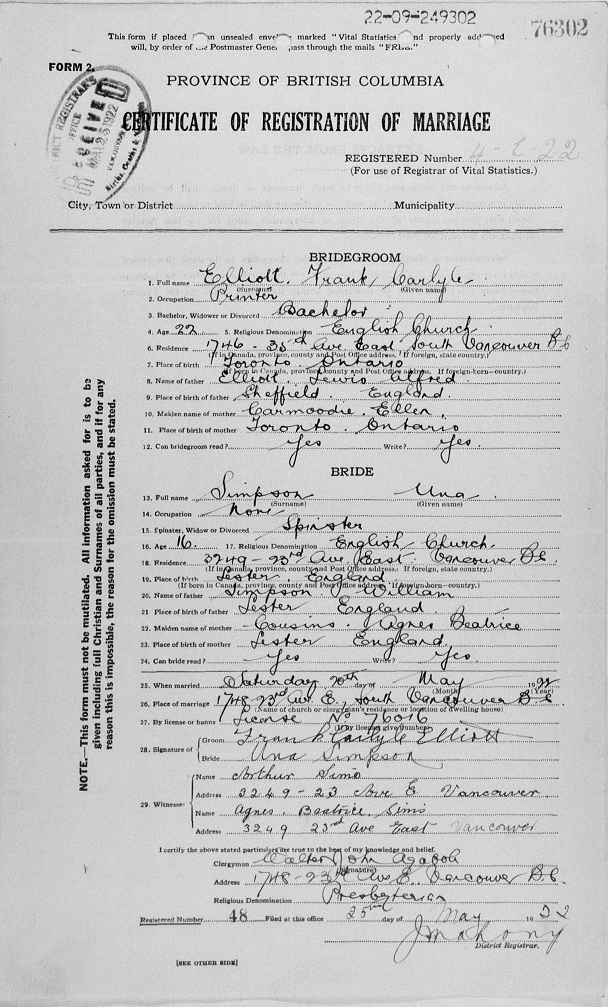 22-09-249302
76302
This form if placed in an unsealed envelope marked "Vital Statistics" and properly addressed
will, by order of the Postmaster General pass through the mails "FREE."
FORM 2.
PROVINCE OF BRITISH COLUMBIA
CERTIFICATE OF REGISTRATION OF MARRIAGE
RECEIVED
MAY 25 1922
REGISTERED Number
(For use of Registrar of Vital Statistics.)
City, Town or District Municipality
NOTE.—This form must not be mutilated. All information asked for is to be
given including full Christian and Surnames of all parties, and if for any
reason this is impossible, the reason for the omission must be stated.
BRIDEGROOM
1. Full name Elliott, Frank Carlyle
(Surname) (Given name)
2. Occupation Printer
3. Bachelor, Widower or Divorced Bachelor
4. Age 22 5. Religious Denomination English Church
6. Residence 1746 - 35th Ave. East South Vancouver B.C
(If in Canada, province, county and Post Office address. If foreign, state country.)
7. Place of birth Toronto. Ontario
(If born in Canada, province, county and Post Office address. If foreign-born—country.)
8. Name of father Elliott. Lewis Alfred.
9. Place of birth of father Sheffield. England.
10. Maiden name of mother Carmoodie. Ellen.
11. Place of birth of mother Toronto. Ontario
12. Can bridegroom read? Yes Write? Yes.
BRIDE
13. Full name Simpson Una.
(Surname) (Given name)
14. Occupation None
15. Spinster, Widow or Divorced Spinster
16. Age 16. 17. Religious Denomination English Church.
18. Residence 3249 - 23rd Ave East. Vancouver B.C.
(If in Canada, province, county and Post Office address. If foreign, state country.)
19. Place of birth Lester England
(If born in Canada, province, county and Post Office address. If foreign-born—country.)
20. Name of father Simpson William
21. Place of birth of father Lester England.
22. Maiden name of mother Cousins. Agnes Beatrice
23. Place of birth of mother Lester England.
24. Can bride read? Yes Write? Yes.
25. When married Saturday 20th day of May 1922
(Month) (Year)
26. Place of marriage 1748-23rd Ave E., South Vancouver B.C.
(Name of church or clergyman's residence or location of dwelling house)
27. By license or banns License No 76016
(If by license give number)
28. Signature of Groom Frank Carlyle Elliott
Bride Una Simpson
29. Witnesses Name Arthur Sims
Address 3249 - 23 Ave E Vancouver.
Name Agnes. Beatrice. Sims
Address 3249 23rd Ave East Vancouver
I certify the above stated particulars are true to the best of my knowledge and belief.
Clergyman Walter John Agabob
(Signature)
Address 1748-23rd Ave E., Vancouver B.C.
Religious Denomination Presbyterian
Registered Number 48 Filed at this office 25th day of May 1922
J Mahony
District Registrar.
[SEE OTHER SIDE]